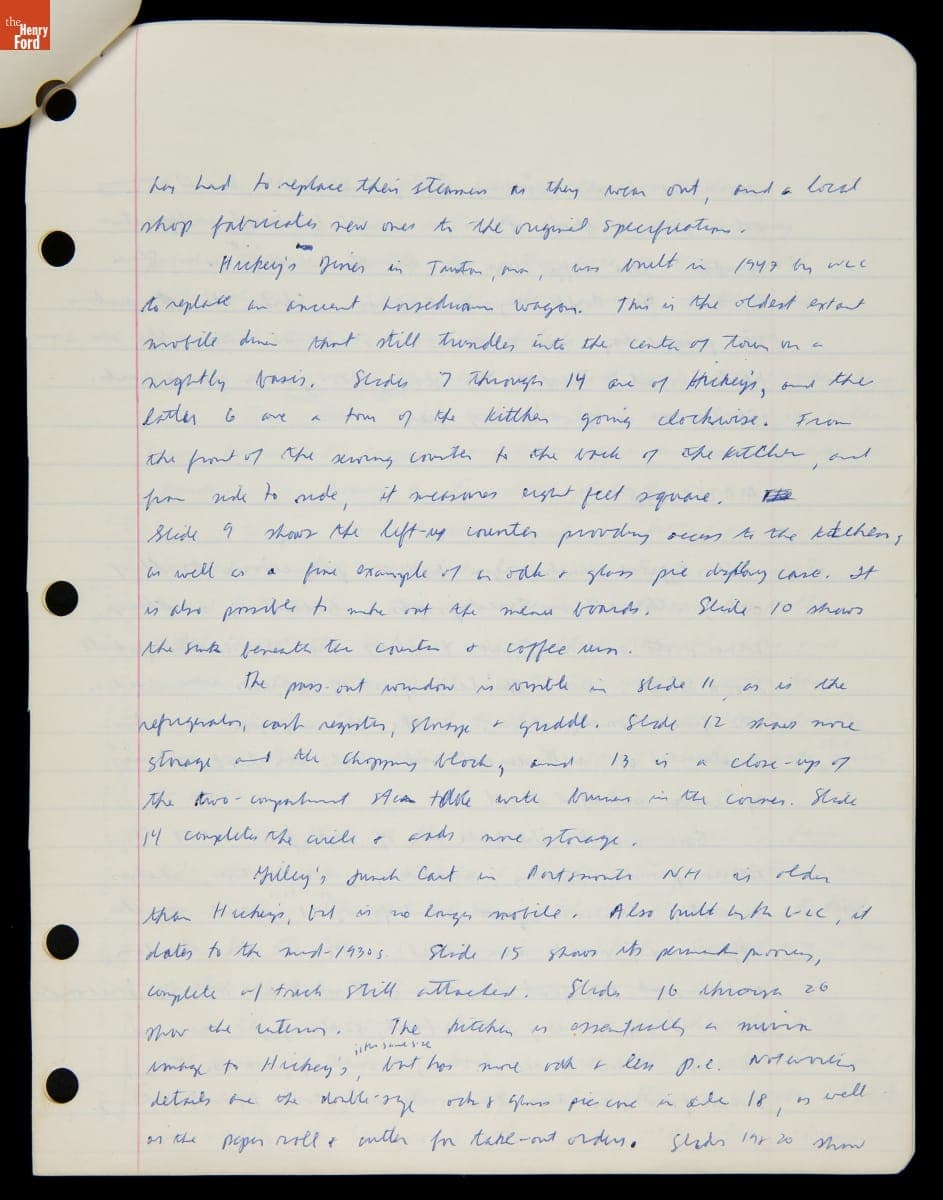 the
Henry
Ford
has had to replace their steamers as they wear out, and a local
shop fabricates new ones to the original specifications.
Hickey's Diner in Taunton, MA, was built in 1947 by WLC
to replace an ancient horsedrawn wagon. This is the oldest extant
mobile diner that still trundles into the center of town on a
nightly basis. Slides 7 through 14 are of Hickey's, and the
latter 6 are a tour of the kitchen going clockwise. From
the front of the serving counter to the back of the kitchen, and
from side to side, it measures eight feet square.
Slide 9 shows the lift-up counter providing access to the kitchen,
as well as a fine example of an oak & glass pie display case. It
is also possible to make out the menu boards. Slide 10 shows
the sink beneath the counter & coffee urn.
The pass-out window is visible in slide 11, as is the
refrigerator, cash register, storage & griddle. Slide 12 shows more
storage and the chopping block, and 13 is a close-up of
the two-compartment steam table with burners in the corner. Slide
14 completes the circle & adds more storage.
Gilley's Lunch Cart in Portsmouth NH is older
than Hickey's, but is no longer mobile. Also built by the WLC, it
dates to the mid-1930s. Slide 15 shows its permanent mooring,
complete w/ truck still attached. Slides 16 through 26
show the interior. The kitchen is essentially a mirror
image to Hickey's, is the same size but has more oak & less p.e. Noteworthy
details are the double-size oak & glass pie case in slide 18, as well
as the paper roll & cutter for take-out orders. Slides 19 & 20 show